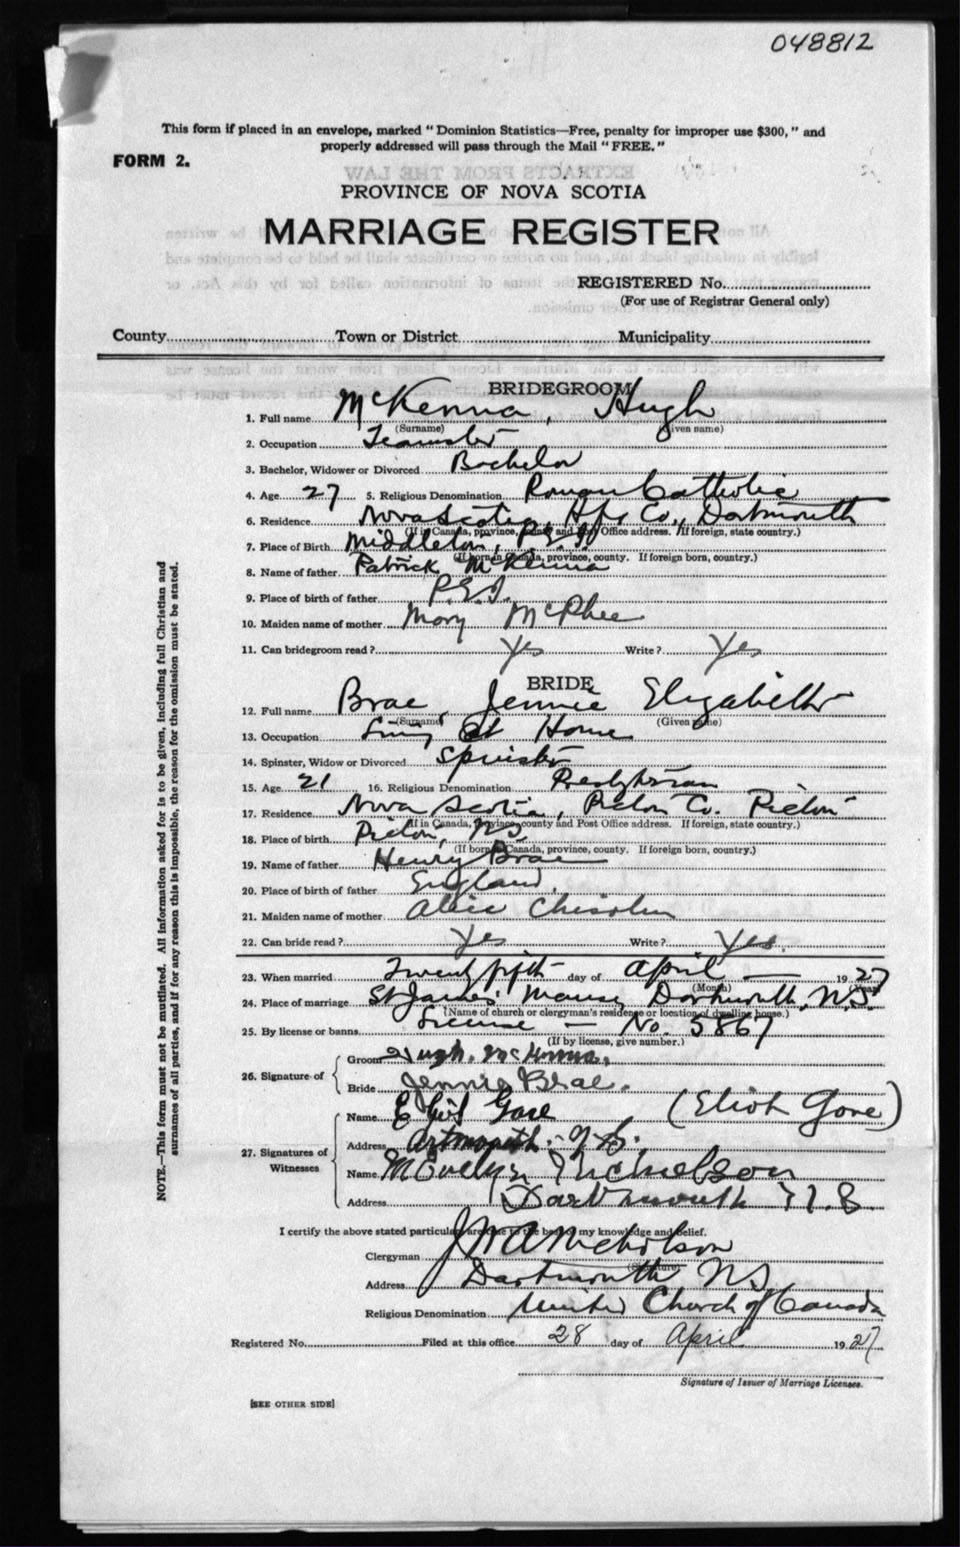 048812
This form if placed in an envelope, marked "Dominion Statistics—Free, penalty for improper use $300," and
properly addressed will pass through the Mail "FREE."
FORM 2.
EXTRACTS FROM THE LAW
PROVINCE OF NOVA SCOTIA
MARRIAGE REGISTER
REGISTERED No.
(For use of Registrar General only)
County Town or District Municipality
BRIDEGROOM
1. Full name McKenna, Hugh
(Surname) (Given name)
2. Occupation Teamster
3. Bachelor, Widower or Divorced Bachelor
4. Age 27 5. Religious Denomination Roman Catholic
6. Residence Nova Scotia, Hfx Co., Dartmouth
(If in Canada, province, county and Post Office address. If foreign, state country.)
7. Place of Birth Middleton, P.E.I.
(If born in Canada, province, county. If foreign born, country.)
8. Name of father Patrick McKenna
9. Place of birth of father P.E.I.
10. Maiden name of mother Mary McPhee
11. Can bridegroom read? Yes Write? Yes
BRIDE
12. Full name Brae, Jennie Elizabeth
(Surname) (Given name)
13. Occupation Living at Home
14. Spinster, Widow or Divorced Spinster
15. Age 21 16. Religious Denomination Presbyterian
17. Residence Nova Scotia, Pictou Co. Pictou
(If in Canada, province, county and Post Office address. If foreign, state country.)
18. Place of birth Pictou, N.S.
(If born in Canada, province, county. If foreign born, country.)
19. Name of father Henry Brae
20. Place of birth of father England.
21. Maiden name of mother Alice Chisolm
22. Can bride read? Yes Write? Yes.
23. When married Twenty fifth day of April 1927
(Month) (Year)
24. Place of marriage St James' Manse, Dartmouth, N.S.
(Name of church or clergyman's residence or location of dwelling house.)
25. By license or banns License — No. 5867
(If by license, give number.)
26. Signature of Groom Hugh. McKenna.
Bride Jennie Brae.
27. Signatures of Witnesses Name Eliot Gore (Eliot Gore)
Address Dartmouth. N.S.
Name M Evelyn Nicholson
Address Dartmouth N.S.
I certify the above stated particulars are true to the best of my knowledge and belief.
Clergyman Nicholson
(Signature)
Address Dartmouth N.S.
Religious Denomination United Church of Canada
Registered No. Filed at this office 28 day of April 1927
Signature of Issuer of Marriage Licenses.
[SEE OTHER SIDE]
NOTE.—This form must not be mutilated. All information asked for is to be given, including full Christian and
surnames of all parties, and if for any reason this is impossible, the reason for the omission must be stated.